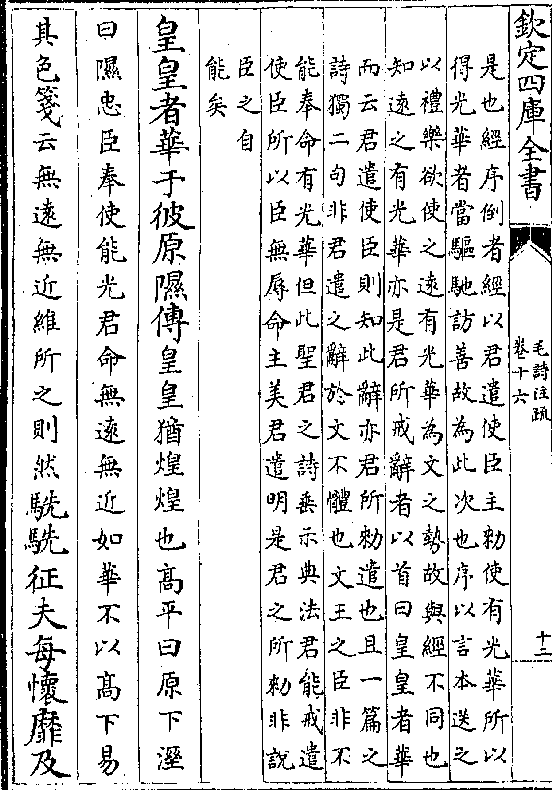 欽定四庫全書
毛詩注疏
卷十六
十二
是也經序倒者經以君遣使臣主勅使有光華所以
得光華者當驅馳訪善故為此次也序以言本送之
以禮樂欲使之遠有光華為文之勢故與經不同也
知遠之有光華亦是君所戒辭者以首曰皇皇者華
而云君遣使臣則知此辭亦君所勅遣也且一篇之
詩獨二句非君遣之辭於文不體也文王之臣非不
能奉命有光華但此聖君之詩垂示典法君能戒遣
使臣所以臣無辱命主美君遣明是君之所勅非說
臣之自
能矣
皇皇者華于彼原隰傳皇皇猶煌煌也髙平曰原下溼
曰隰忠臣奉使能光君命無遠無近如華不以髙下易
其色箋云無遠無近維所之則然駪駪征夫每懷靡及